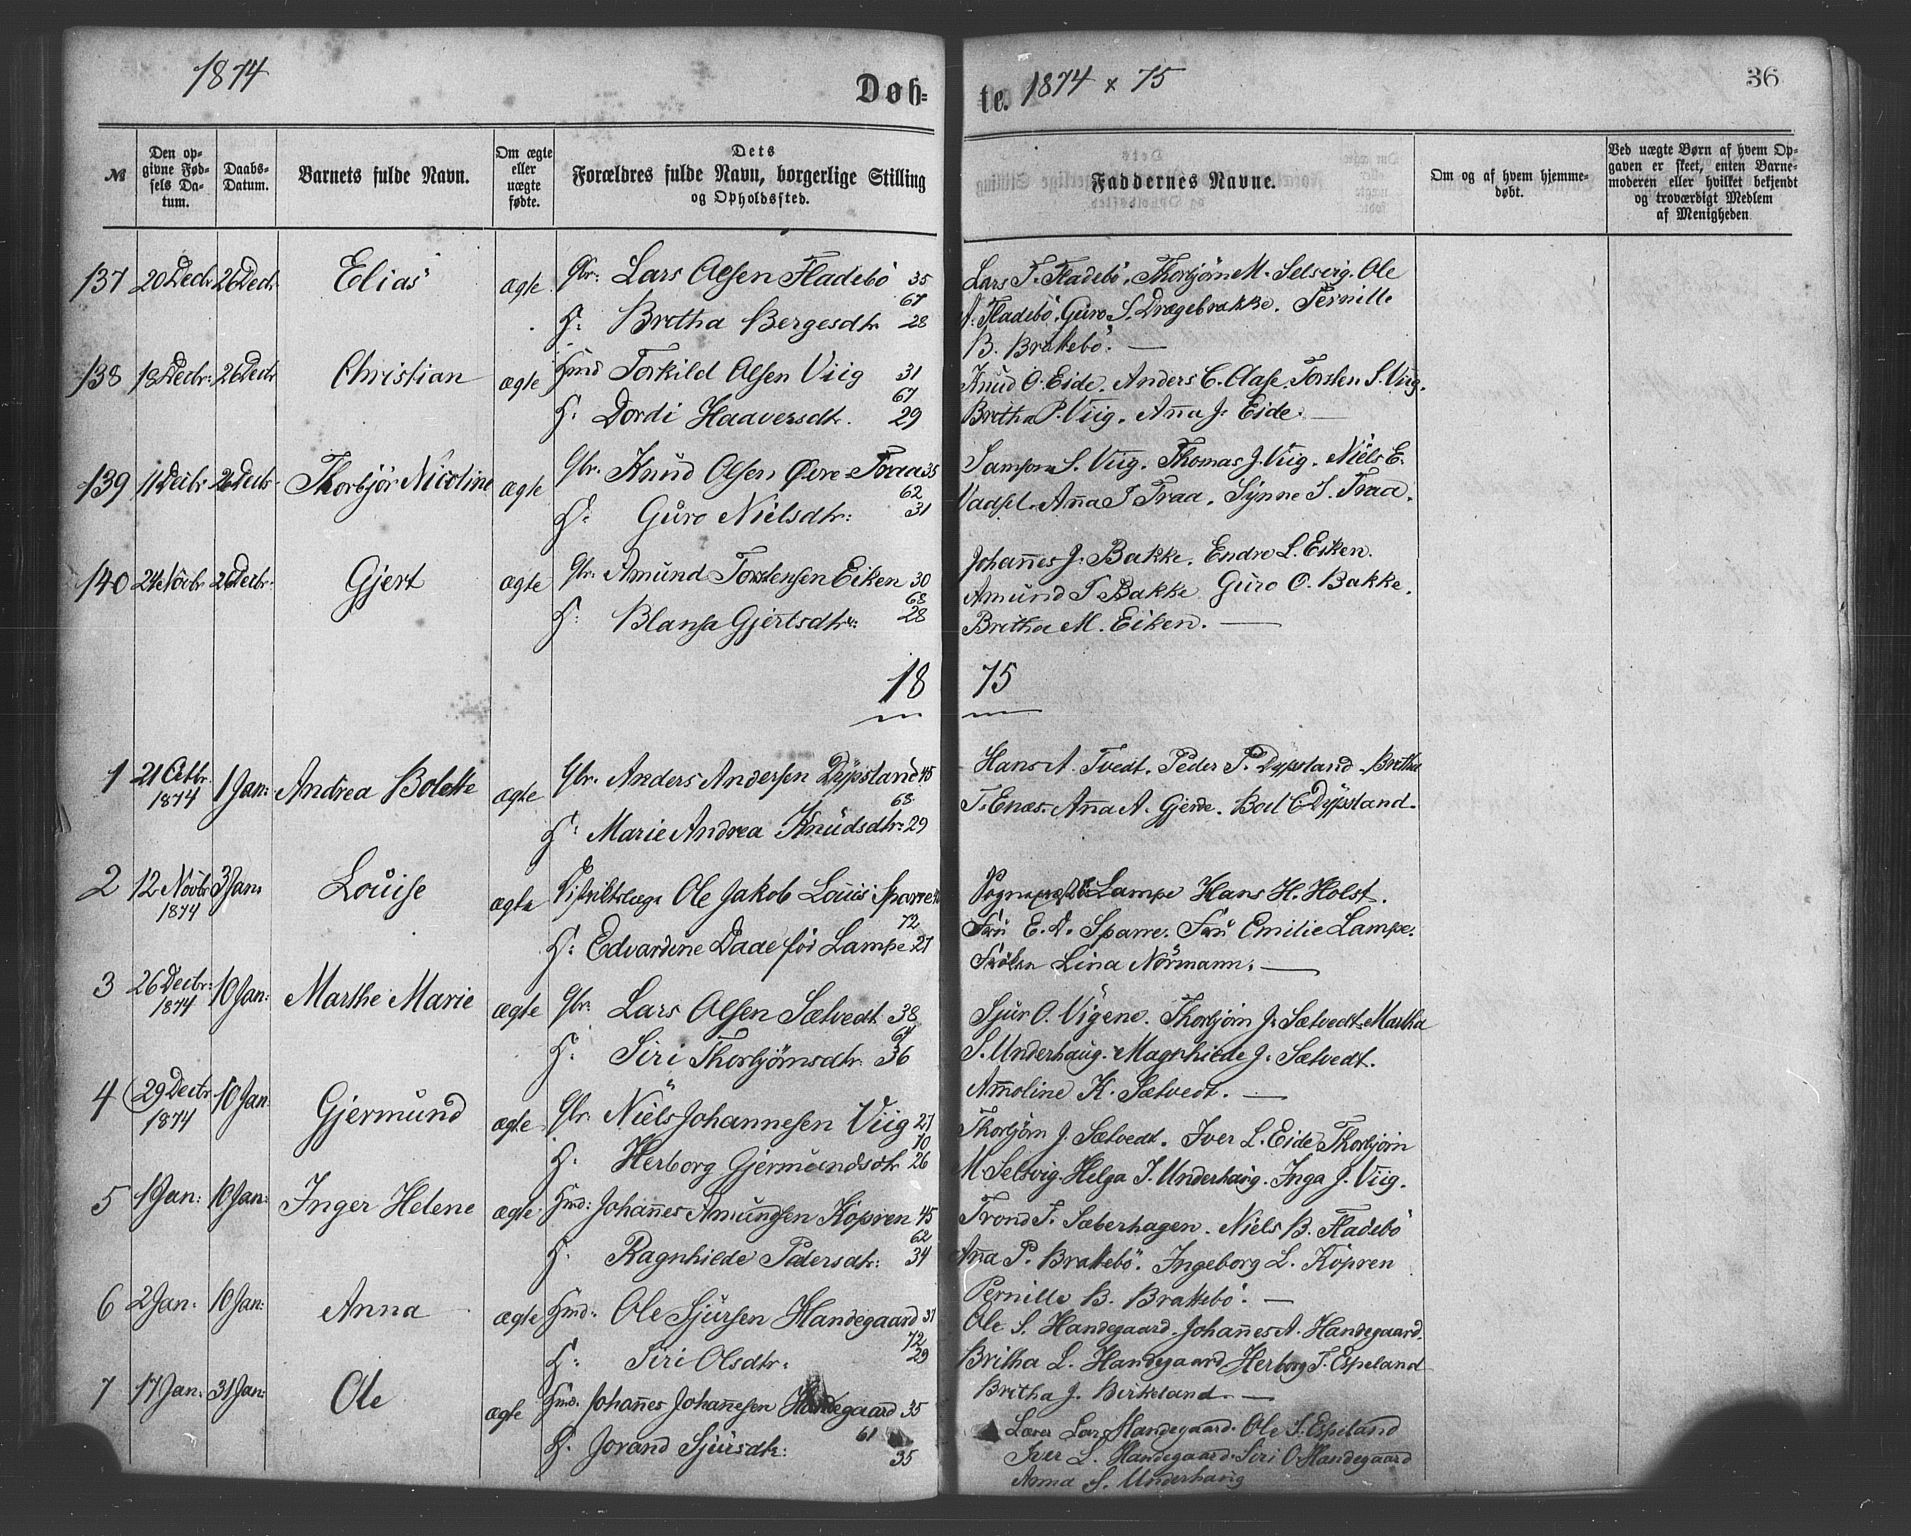 1874
Døb=
te. 1874 x 75
36
№
Den op-
givne Fød-
sels Da-
tum.
Daabs-
Datum.
Barnets fulde Navn.
Om ægte
eller
uægte
fødte.
Dets
Forældres fulde Navn, borgerlige Stilling
og Opholdssted.
Faddernes Navne.
Om og af hvem hjemme-
døbt.
Ved uægte Børn af hvem Op-
gaven er skeet, enten Barne-
moderen eller hvilket bekjendt
og troværdigt Medlem
af Menigheden
137 20 Decbr 26 Decbr Elias ægte Gbr: Lars Olsen Fladebö 35
67
H: Bretha Bergesdtr 28
Lars T. Fladebö. Thorbjörn M. Selsvig. Ole
Fladebö. Guro S. Drægebrakke. Pernille
B. Brakebö. —
138 18 Decbr: 26 Decbr Christian ægte Hmd Torkild Olsen Viig 31
67
H: Dordi Haaversdtr. 29
Knud O. Eide. Anders C. Aase. Torsten S. Viig.
Bretha P. Viig. Anna J. Eide. —
139 11 Decbr: 26 Decbr Thorbjör Nicoline ægte Gbr. Knud Olsen Övre-Traa 35
62
H: Guro Nielsdtr: 31
Samson S. Viig. Thomas J. Viig. Niels E.
Vadsel. Anna T Traa. Synne I. Traa.
140 24 Novbr 26 Decbr. Gjert ægte Gbr. Amund Torstensen Eiken 30
68
H: Blansa Gjertsdtr: 28
Johannes J. Bakke. Endre L. Eiken.
Amund T Bakke Guro O. Bakke.
Bretha M. Eiken. —
18 75
1 21 Octbr. 1874 1 Jan: Andrea Bolette ægte Gbr. Anders Andersen Dypsland 45
68
H: Marie Andrea Knudsdtr: 29
Hans A. Tvedt. Peder P. Dypsland. Bretha
T. Enæs. Anna A. Gjerde. Boel C. Dypsland.
2 12 Novbr 1874 3 Jan: Louise ægte Distriktslæge Ole Jakob Louis Sparre
72
H: Edvardine Daae föd Lampe 27
Lampe Hans H. Holst.
Fru E. D. Sparre. Fru Emilie Lampe.
Fröken Lina Normann. —
3 26 Decbr: 1874 10 Jan: Marthe Marie ægte Gbr. Lars Olsen Sætvedt 38
H: Siri Thorbjörnsdtr 36
Sjur O. Vigene. Thorbjörn J. Sætvedt. Martha
S. Underhaug. Magnhilde J. Sætvedt.
Ammoline K. Sætvedt. —
4 29 Decbr 1874 10 Jan Gjermund ægte Gbr. Niels Johannesen Viig 27
70
H: Herborg Gjermundsdtr 26
Thorbjörn J. Sætvedt. Iver L. Eide Thorbjörn
M. Selsvig. Helga I. Underhaug. Inga J. Viig.
5 1 Jan: 10 Jan: Inger Helene ægte Hmd: Johannes Amundsen Köpren 45
62
H: Ragnhilde Pedersdtr: 34
Trond T. Sæberhagen. Niels B. Fladebö
Anna P. Brakebö. Ingeborg L. Köpren
Pernille B. Brakebö. —
6 2 Jan: 10 Jan: Anna ægte Hmd: Ole Sjursen Handegaard 31
72
H: Siri Olsdtr: 29
Ole S. Handegaard. Johannes A. Handegaard.
Britha L. Handegaard Herborg T. Espeland
Bretha J. Birkeland. —
7 17 Jan: 31 Jan: Ole ægte Hmd. Johannes Johannesen Handegaard 35
61
H. Jorand Sjursdtr: 35
Lærer Lars Handegaard. Ole S. Espeland
Iver L. Handegaard. Siri O. Handegaard
Anna S. Underhaug